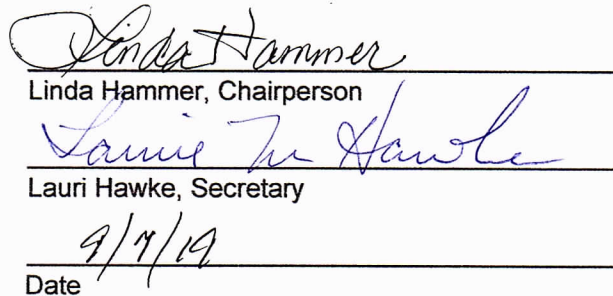 Linda Hammer
Linda Hammer, Chairperson
Laurie M Hawke
Lauri Hawke, Secretary
9/7/19
Date